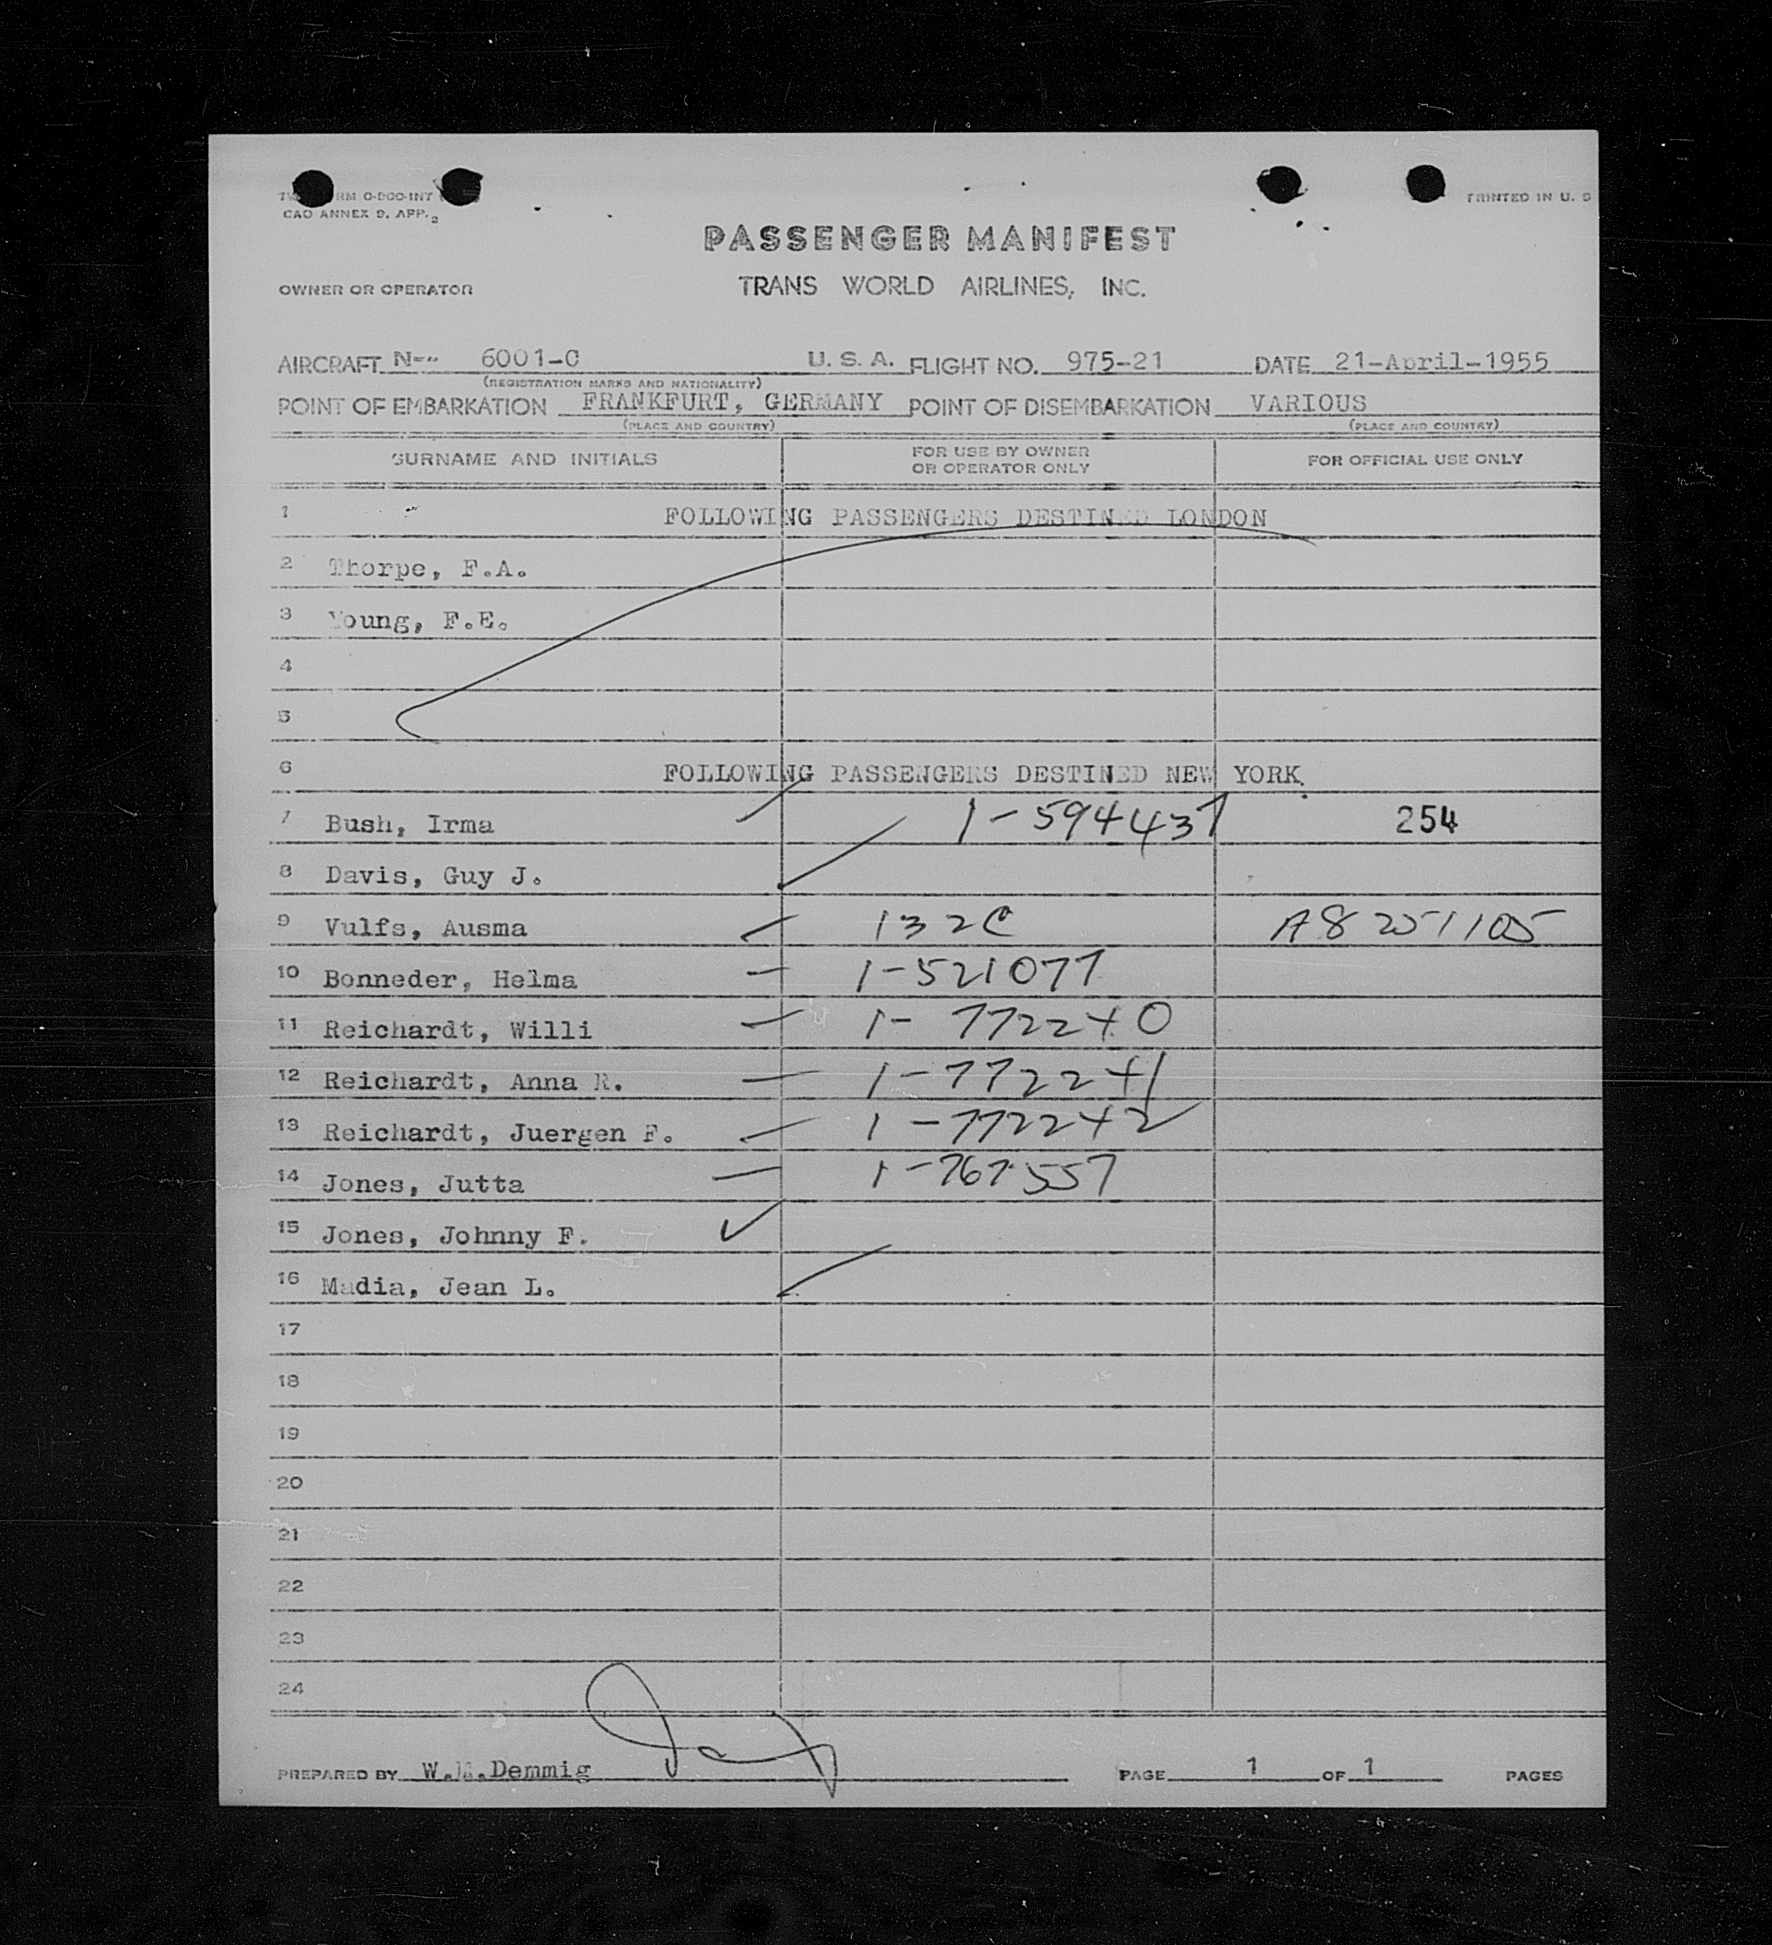 CAO ANNEX 9, APP. 2
PRINTED IN U. S
PASSENGER MANIFEST
OWNER OR OPERATOR TRANS WORLD AIRLINES, INC.
AIRCRAFT N-- 6001-C U. S. A. FLIGHT NO. 975-21 DATE 21-April-1955
(REGISTRATION MARKS AND NATIONALITY)
POINT OF EMBARKATION FRANKFURT, GERMANY POINT OF DISEMBARKATION VARIOUS
(PLACE AND COUNTRY) (PLACE AND COUNTRY)
SURNAME AND INITIALS FOR USE BY OWNER OR OPERATOR ONLY FOR OFFICIAL USE ONLY
1 FOLLOWING PASSENGERS DESTINED LONDON
2 Thorpe, F.A.
3 Young, F.E.
4
5
6 FOLLOWING PASSENGERS DESTINED NEW YORK.
7 Bush, Irma 1-594437 254
8 Davis, Guy J.
9 Vulfs, Ausma 132C A8 251105
10 Bonneder, Helma 1-521077
11 Reichardt, Willi 1-772240
12 Reichardt, Anna R. 1-772241
13 Reichardt, Juergen F. 1-772242
14 Jones, Jutta 1-767557
15 Jones, Johnny F.
16 Madia, Jean L.
17
18
19
20
21
22
23
24
PREPARED BY W.M.Demmig PAGE 1 OF 1 PAGES